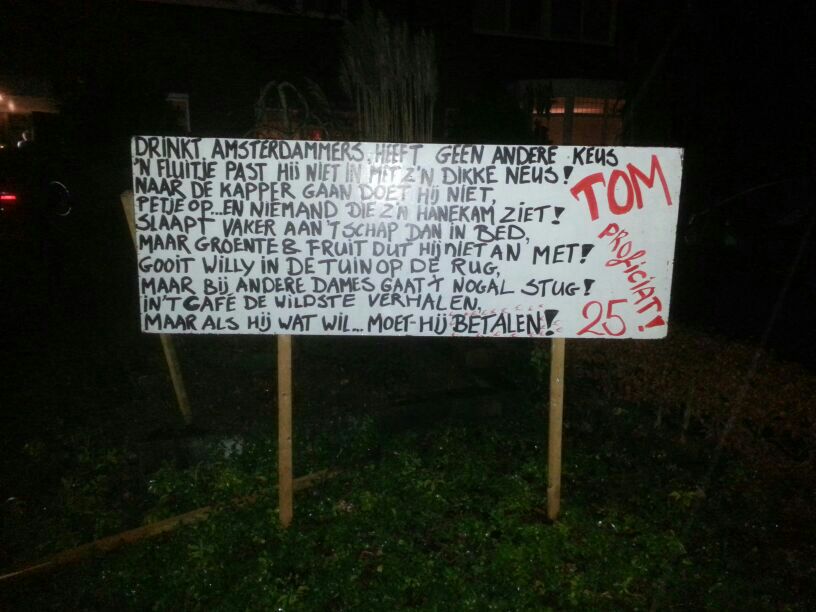 DRINKT AMSTERDAMMERS, HEEFT GEEN ANDERE KEUS
'N FLUITJE PAST HIJ NIET IN MET Z'N DIKKE NEUS!
NAAR DE KAPPER GAAN DOET HIJ NIET,
PETJE OP... EN NIEMAND DIE Z'N HANEKAM ZIET!
SLAAPT VAKER AAN 'T SCHAP DAN IN BED,
MAAR GROENTE & FRUIT DUT HIJ NIET AN MET!
GOOIT WILLY IN DE TUIN OP DE RUG,
MAAR BIJ ANDERE DAMES GAAT 'T NOGAL STUG!
IN 'T CAFÉ DE WILDSTE VERHALEN,
MAAR ALS HIJ WAT WIL... MOET HIJ BETALEN!
TOM
PROficiAT!
25